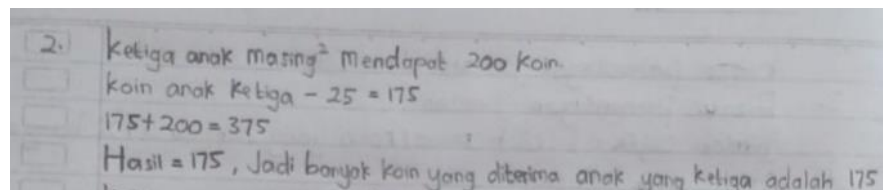 2. Ketiga anak masing² mendapat 200 koin.
Koin anak Ketiga - 25 = 175
175 + 200 = 375
Hasil = 175, Jadi banyak koin yang diterima anak yang Ketiga adalah 175